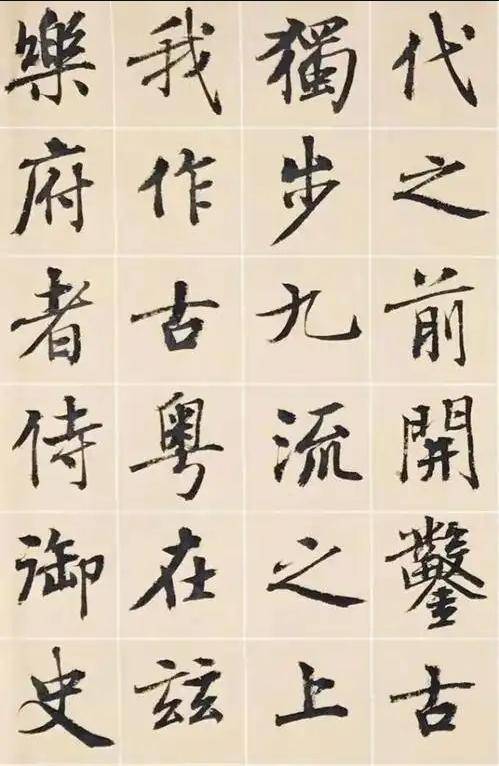 代之前開鑿古
獨步九流之上
我作古粵在玆
樂府者侍御史